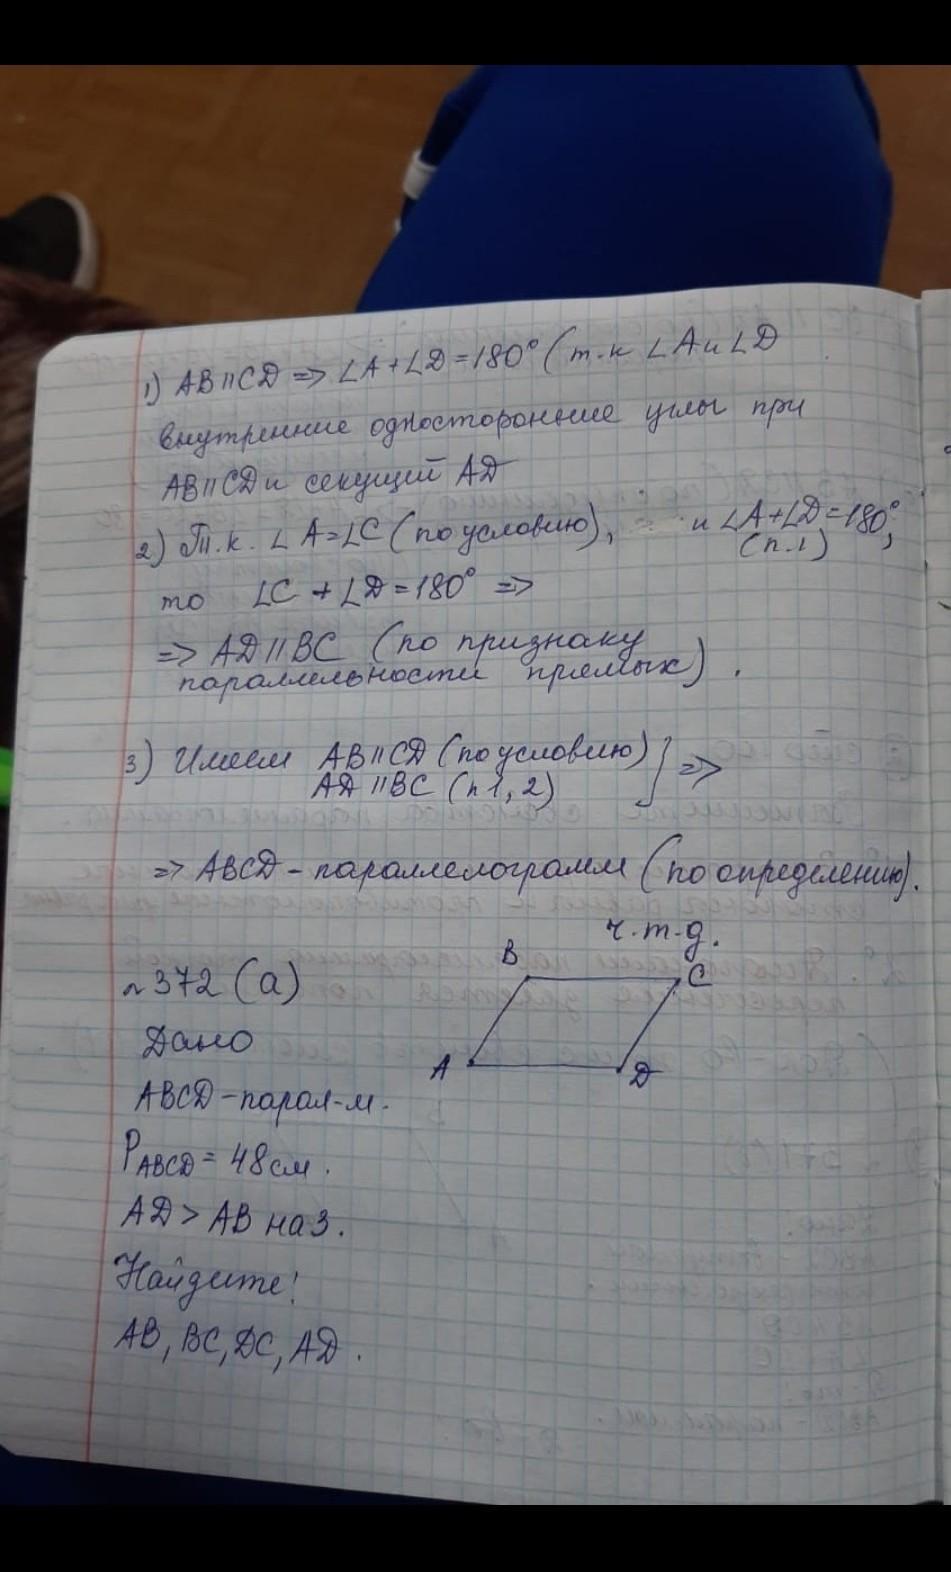 1) AB∥CD => ∠A+∠D=180° (т.к ∠A и ∠D
внутренние односторонние углы при
AB∥CD и секущий AD
2) Т.к. ∠A=∠C (по условию), и ∠A+∠D=180°,
(п.1)
то ∠C+∠D=180° =>
=> AD∥BC (по признаку
параллельности прямых).
3) Имеем AB∥CD (по условию) } =>
AD∥BC (п 1, 2)
=> ABCD – параллелограмм (по определению).
ч.т.д.
B
C
№372 (а)
Дано
A
D
ABCD – парал-м.
P_ABCD = 48 см.
AD > AB на 3.
Найдите!
AB, BC, DC, AD.